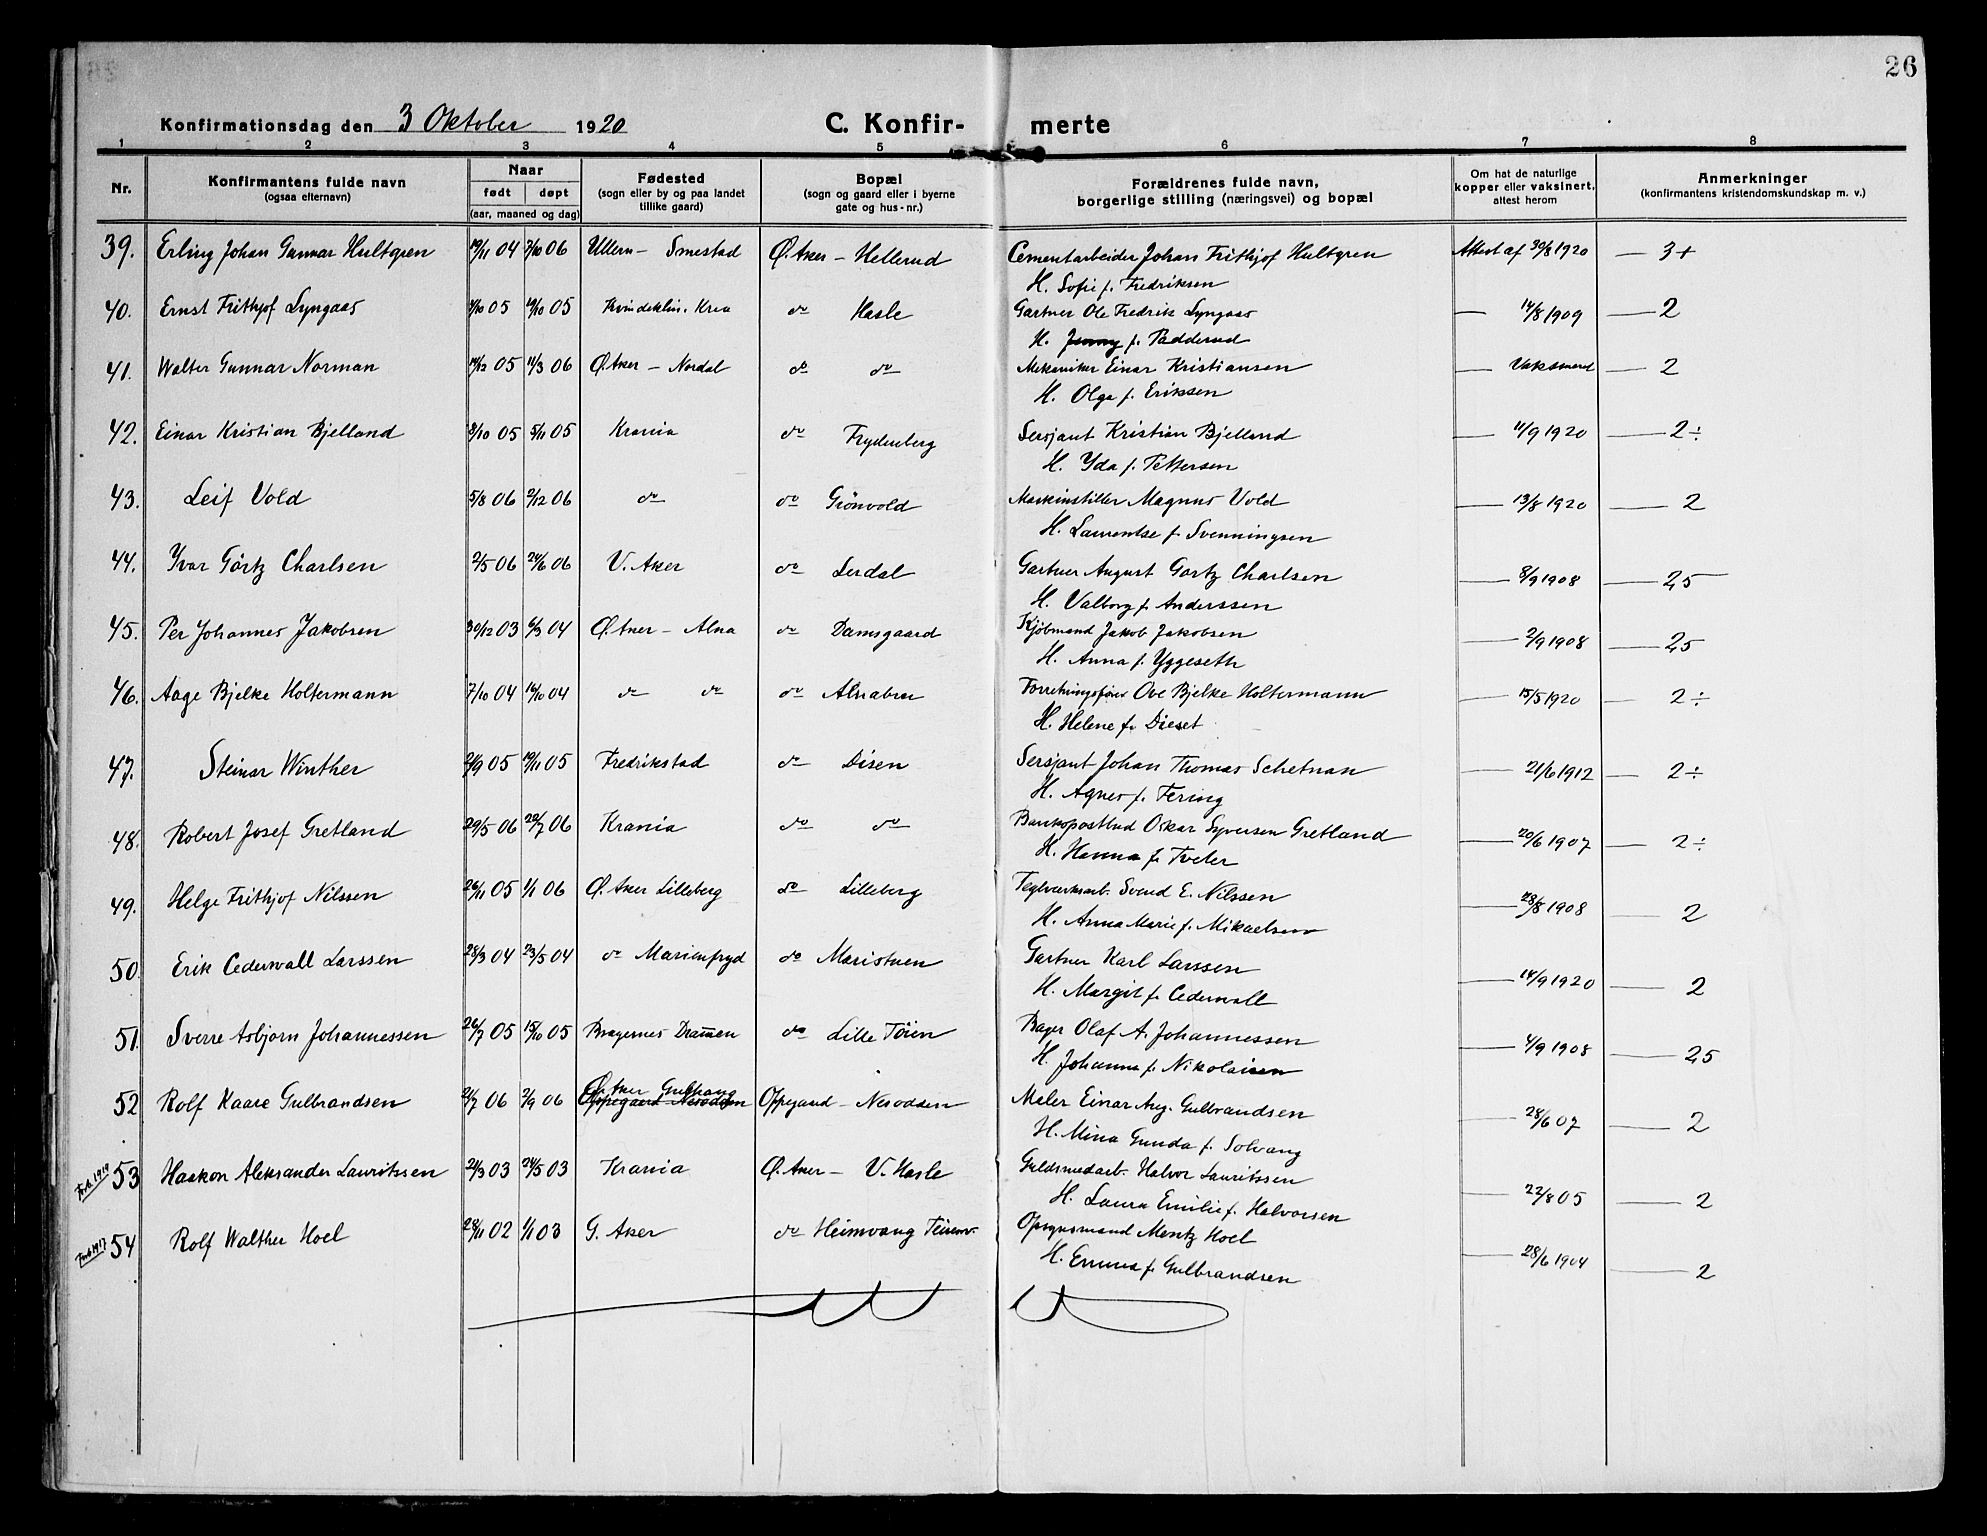 26
Konfirmationsdag den 3 Oktober 1920 C. Konfir- merte
1 2 3 4 5 6 7 8
Nr. Konfirmantens fulde navn (ogsaa efternavn) Naar født døpt (aar, maaned og dag) Fødested (sogn eller by og paa landet tillike gaard) Bopæl (sogn og gaard eller i byerne gate og hus-nr.) Forældrenes fulde navn, borgerlige stilling (næringsvei) og bopæl Om hat de naturlige kopper eller vaksinert, attest herom Anmerkninger (konfirmantens kristendomskundskap m. v.)
39. Erling Johan Gunnar Hultgren 19/11 04 7/10 06 Ullern - Smestad Ø. Aker - Hellerud Cementarbeider Johan Frithjof Hultgren Attest af 30/8 1920 — 3+
H. Sofie f. Fredriksen
40. Ernst Frithjof Lyngaas 1/10 05 19/10 05 Kvindeklin. Kra do Hasle Gartner Ole Fredrik Lyngaas — 14/8 1909 — 2
H. Jenny f. Padderud
41. Walter Gunnar Norman 14/12 05 11/3 06 Ø. Aker - Nordal do do Mekaniker Einar Kristiansen — Vaksinerd — 2
H. Olga f. Eriksen
42. Einar Kristian Bjelland 8/10 05 5/11 05 Krania do Frydenberg Sersjant Kristian Bjelland — 11/9 1920 — 2÷
H. Yda f. Pettersen
43. Leif Vold 5/8 06 2/12 06 do do Grönvold Maskinstiller Magnus Vold — 13/8 1920 — 2
H. Laurentse f. Svenningsen
44. Yvar Görtz Charlsen 2/5 06 24/6 06 V. Aker do Lerdal Gartner August Gortz Charlsen — 8/9 1908 — 2,5
H. Valborg f. Anderssen
45. Per Johannes Jakobsen 30/12 03 6/3 04 Ø. Aker - Alna do Damsgaard Kjøbmand Jakob Jakobsen — 2/9 1908 — 2,5
H. Anna f. Yggeseth
46. Aage Bjelke Holtermann 7/10 04 16/10 04 do do do Alnabru Forretningsfører Ove Bjelke Holtermann — 15/5 1920 — 2÷
H. Helene f. Dieset
47. Steinar Winther 2/9 05 19/11 05 Fredrikstad do Disen Sersjant Johan Thomas Schetnan — 21/6 1912 — 2÷
H. Agnes f. Fering
48. Robert Josef Gretland 29/5 06 22/7 06 Krania do do Bankopostbud Oskar Syversen Gretland — 20/6 1907 — 2÷
H. Hanna f. Tveter
49. Helge Frithjof Nilssen 26/11 05 1/1 06 Ø. Aker Lilleberg do Lilleberg Teglverksarb. Svend E. Nilssen — 28/8 1908 — 2
H. Anna Marie f. Mikaelsen
50. Erik Cederwall Larssen 28/3 04 23/5 04 do Marienfryd do Maristuen Gartner Karl Larssen — 14/9 1920 — 2
H. Margit f. Cederwall
51. Sverre Asbjorn Johannessen 26/7 05 15/10 05 Bragernes Drammen do Lille Töien Bager Olaf A. Johannessen — 4/9 1908 — 2,5
H. Johanna f. Nikolaisen
52 Rolf Kaare Gulbrandsen 21/7 06 2/9 06 Ø. Aker Oppegaard Nesodden Oppegaard - Nesodden Maler Einar Aug. Gulbrandsen — 28/6 07 — 2
H. Mina Gunda f. Solvang
Forb. 1919 53 Haakon Aleksander Lauritssen 21/3 03 24/5 03 Krania Ø. Aker - V. Hasle Guldsmedarb. Halvor Lauritssen — 22/8 05 — 2
H. Laura Emilie f. Halvorsen
Forb 1917 54 Rolf Walther Hoel 28/11 02 1/1 03 G. Aker do Heimvang Teisenv. Opsynsmand Mentz Hoel — 28/6 1904 — 2
H. Emma f. Gulbrandsen